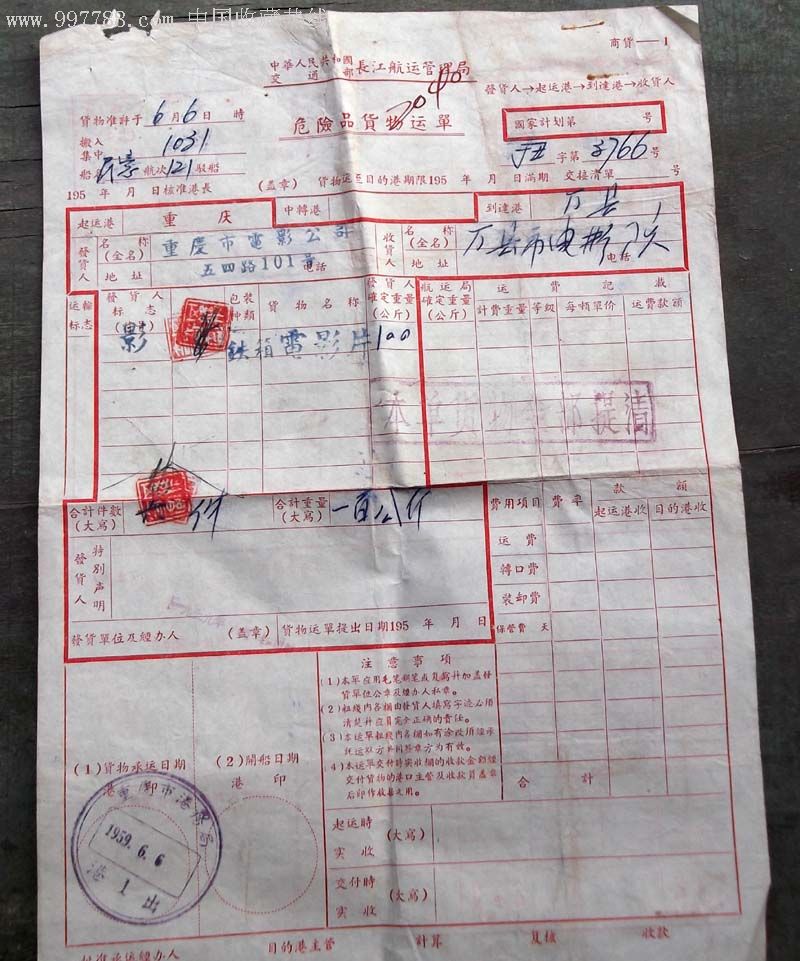 www.997788.com 中国收藏热线
商貨——1
中華人民共和國
交通部 長江航运管理局
發貨人→起运港→到達港→收貨人
2040
危險品貨物运單
國家計划第 号
字第 3766 号
貨物准許于 6月6日 時
搬入
集中 1031
船 航次 121 駁船
195 年 月 日核准港長 (盖章) 貨物运至目的港期限195 年 月 日滿期 交接清單 号
起运港 重庆 中轉港 到達港 万县
發貨人 名称(全名) 重慶市電影公司
地址 五四路101号 电話
收貨人 名称(全名) 万县市电影
地址 电話
运輸标志 發貨人标志(略号) 包裝种類 貨物名称 發貨人確定重量(公斤) 航运局確定重量(公斤) 运費記載
計費重量 等級 每噸單价 运費款額
影 鉄箱 電影片 100
本单货物全部提清
合計件数(大寫) 件 合計重量(大寫) 一百公斤
費用項目 費率 款額
起运港收 目的港收
运費
轉口費
装卸費
保管費 天
合計
發貨人特別声明
發貨單位及經办人 (盖章) 貨物运單提出日期195 年 月 日
注意事項
(1)本單应用毛笔鋼笔或复寫并加盖發
貨單位公章及經办人私章。
(2)粗綫内各欄由發貨人填寫字迹必須
清楚并应負完全正確的責任。
(3)本运單粗綫内各欄如有涂改須經承
託运双方共同签章方为有效。
(4)本运單交付時实收欄的收款金額經
交付貨物的港口主管及收款員盖章
后即作收据之用。
(1)貨物承运日期
港印
(2)開船日期
港印
重慶市港务局
1959.6.6
港1出
起运時
实收 (大寫)
交付時
实收 (大寫)
批准承运經办人 目的港主管 計算 复核 收款